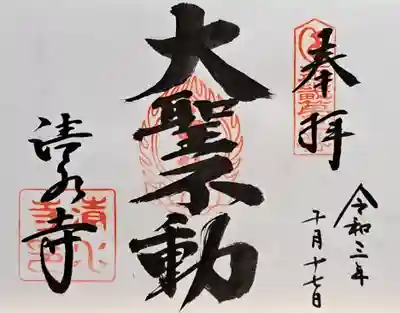 奉拝
令和三年
月十七日
大聖不動
清水寺